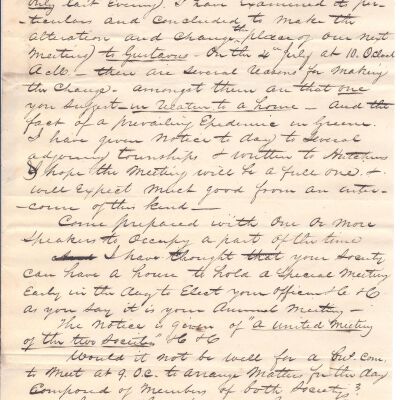 only last Evening). I have examined it par-
ticulars and Concluded to make the
alteration and change the place of our next
Meeting) to Gustavus - On the 4th July at 10. Oclock
A.M. - there are Several Reasons for Making
the Change - amongst them are that one
you Suggest in relation to a home - And the
fact of a prevailing Epedemic in Greene.
I have given Notice to day to Several
adjoining townships & written to
I hope the Meeting will be a full one. &
will Expect Much good from an inter-
course of this kind -
Come prepared with One or More
Speakers to Occupy a part of the time
I have thought that your Society
can have a house to hold a Special Meeting
Early in the day to Elect your Officers &c &c
as you Say it is your Annual Meeting -
The Notice is given of "a united Meeting
of the two Societies" &c &c
Would it not be well for a Com.
to Meet at 9. O.C. to arrange Matters for the day
Composed of Members of both Societys?